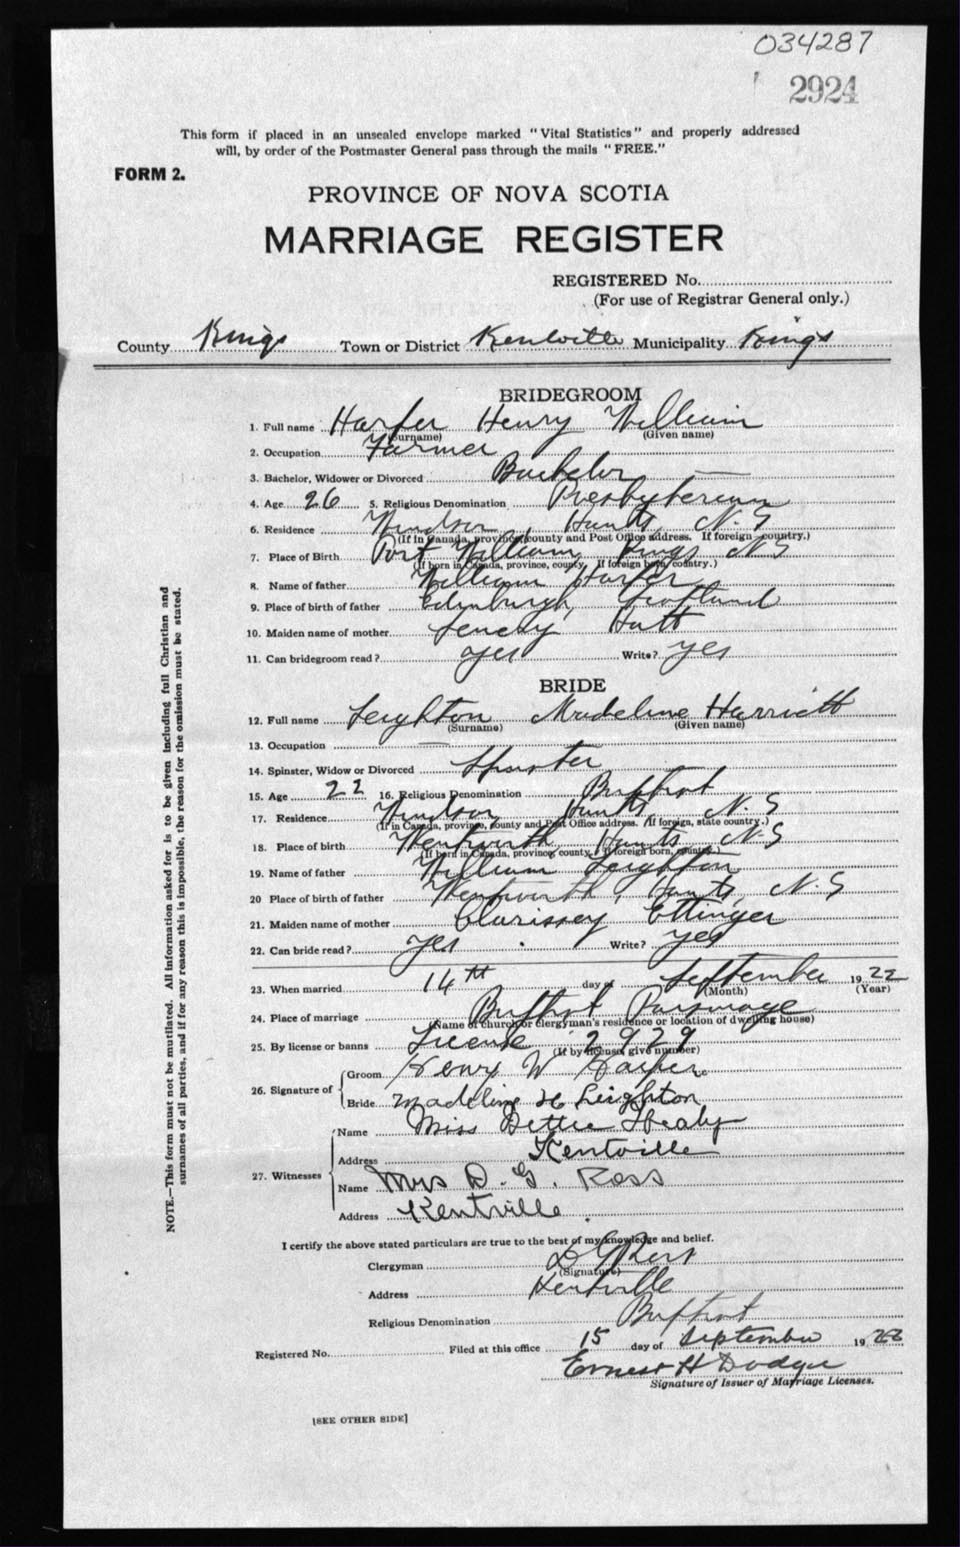 034287
2924
This form if placed in an unsealed envelope marked "Vital Statistics" and properly addressed
will, by order of the Postmaster General pass through the mails "FREE."
FORM 2.
PROVINCE OF NOVA SCOTIA
MARRIAGE REGISTER
REGISTERED No.
(For use of Registrar General only.)
County Kings Town or District Kentville Municipality Kings
BRIDEGROOM
1. Full name Harper Henry William
(Surname) (Given name)
2. Occupation Farmer
3. Bachelor, Widower or Divorced Bachelor
4. Age 26 5. Religious Denomination Presbyterian
6. Residence Windsor, Hants, N.S
(If in Canada, province, county and Post Office address. If foreign country.)
7. Place of Birth Port William, Kings NS
(If born in Canada, province, county. If foreign born, country.)
8. Name of father William Harper
9. Place of birth of father Edinburgh, Scotland
10. Maiden name of mother Hatt
11. Can bridegroom read? yes Write? yes
BRIDE
12. Full name Leighton Madeline Harriett
(Surname) (Given name)
13. Occupation
14. Spinster, Widow or Divorced Spinster
15. Age 22 16. Religious Denomination Baptist
17. Residence Windsor Hants, N. S
(If in Canada, province, county and Post Office address. If foreign, state country.)
18. Place of birth Wentworth, Hants, N.S
(If born in Canada, province, county. If foreign born, country.)
19. Name of father William Leighton
20 Place of birth of father Wentworth, Hants, N.S
21. Maiden name of mother Clarissey Ettinger
22. Can bride read? yes Write? yes
23. When married 14th day of September 1922
(Month) (Year)
24. Place of marriage Baptist Parsonage
(Name of church or clergyman's residence or location of dwelling house)
25. By license or banns License 2929
(If by license, give number)
26. Signature of Groom Henry W Harper
Bride Madeline H Leighton
27. Witnesses Name Miss Healy
Address Kentville
Name Mrs D. G. Ross
Address Kentville.
I certify the above stated particulars are true to the best of my knowledge and belief.
Clergyman D G Ross
(Signature)
Address Kentville
Religious Denomination Baptist
Registered No. Filed at this office 15 day of September 1922
Ernest H Dodge
Signature of Issuer of Marriage Licenses.
[SEE OTHER SIDE]
NOTE.—This form must not be mutilated. All information asked for is to be given including full Christian and
surnames of all parties, and if for any reason this is impossible, the reason for the omission must be stated.